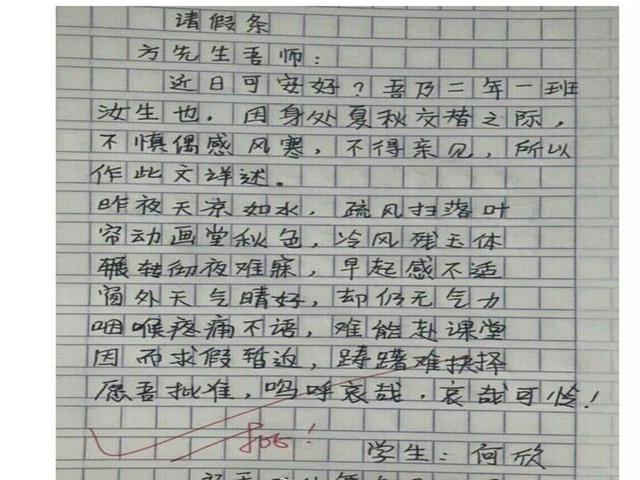 请假条
方先生吾师：
近日可安好？吾乃二年一班
汝生也，因身处夏秋交替之际，
不慎偶感风寒，不得亲见，所以
作此文详述。
昨夜天凉如水，疏风扫落叶
帘动画堂秋色，冷风残玉体
辗转彻夜难寐，早起感不适
窗外天气晴好，却仍无气力
咽喉疼痛不语，难能赴课堂
因而求假暂迫，踌躇难抉择
愿吾批准，呜呼哀哉，哀哉可怜！
学生：何欣